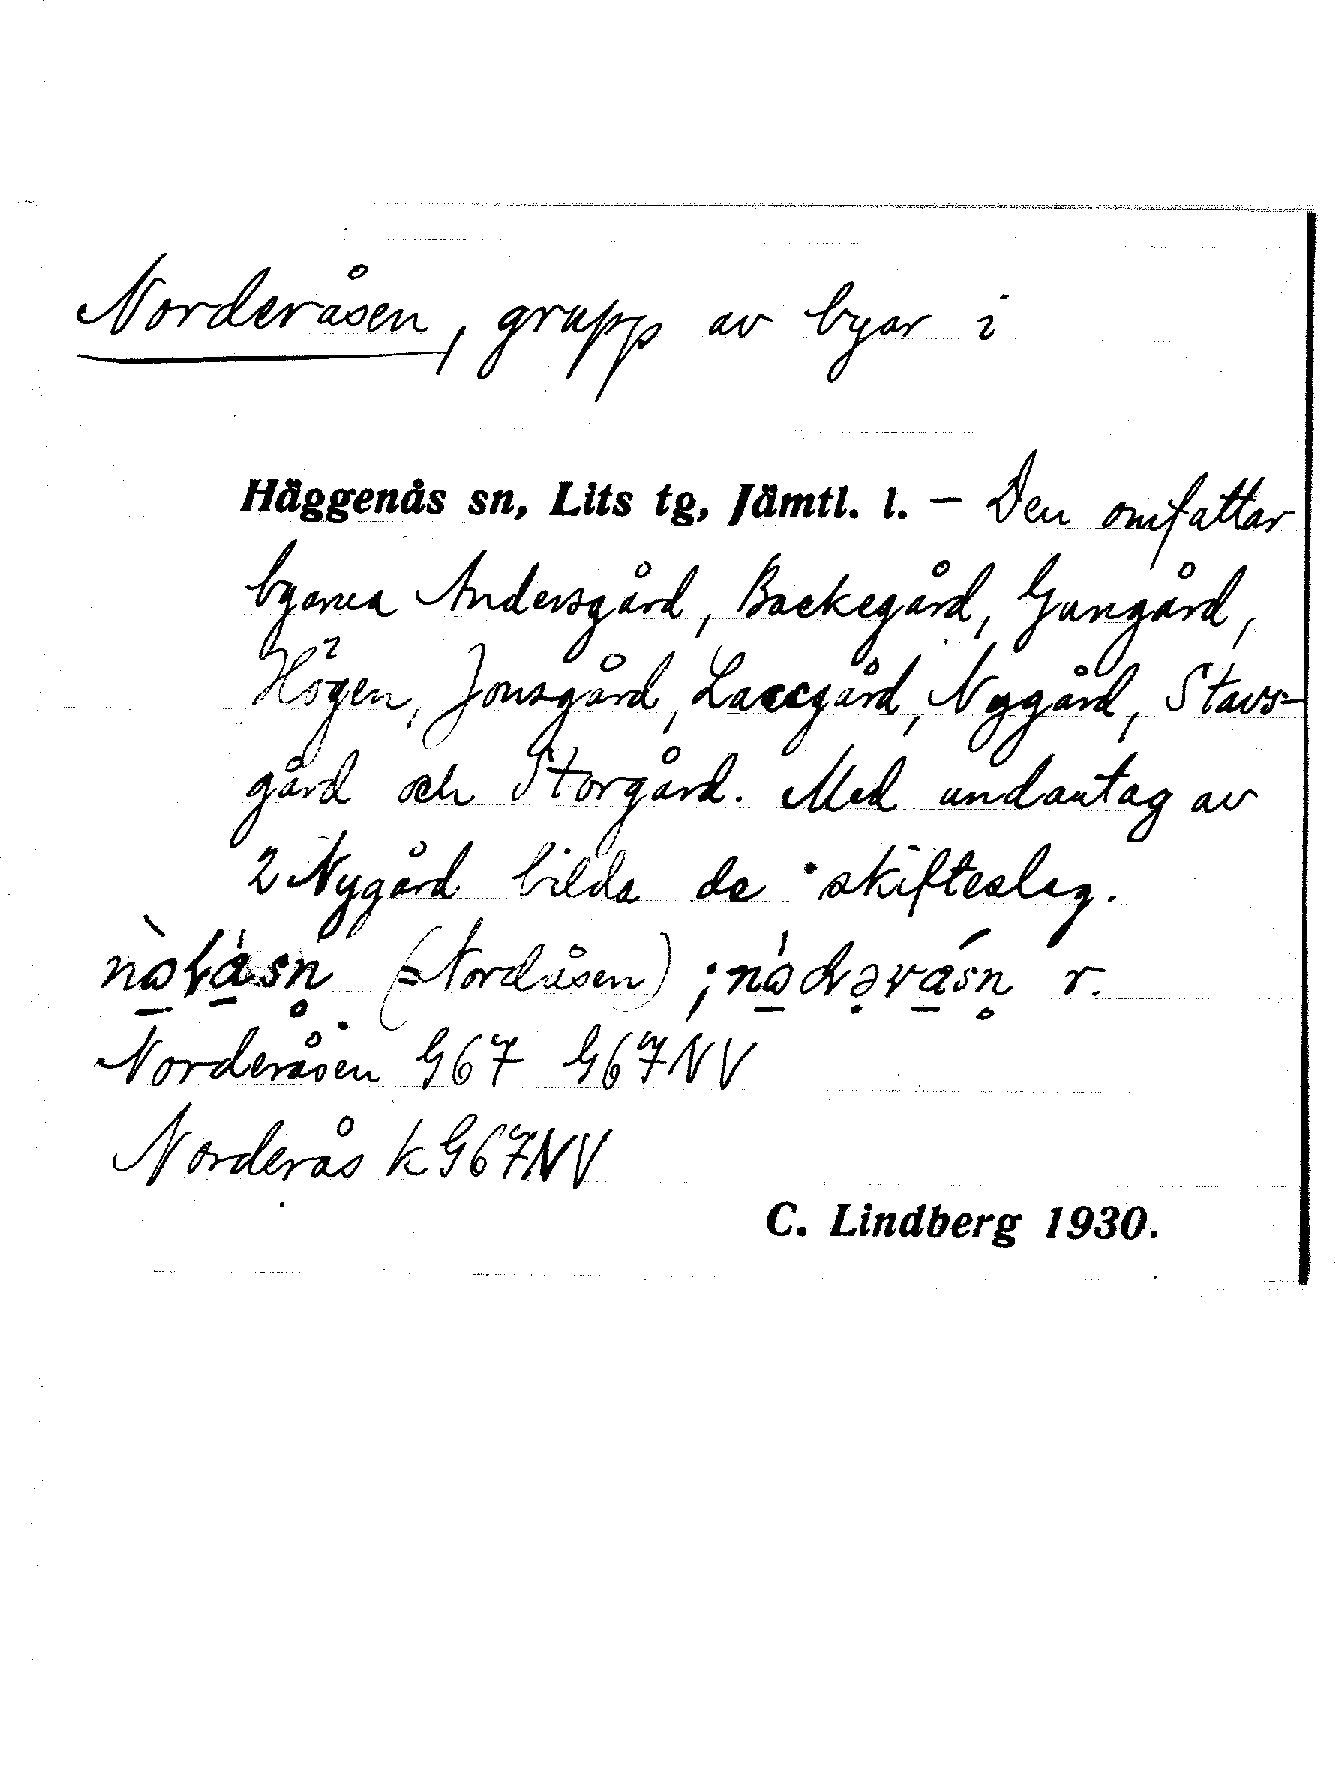 Norderåsen, grupp av byar i
Häggenås sn, Lits tg, Jämtl. l. – Den omfattar
byarna Andersgård, Backegård, Gungård,
Högen, Jonsgård, Laxgård, Nygård, Stavs-
gård och Storgård. Med undantag av
Nygård bilda de skifteslag.
(=Nordåsen) ; r.
Norderåsen G67 G67NV
Norderås k G67NV
C. Lindberg 1930.